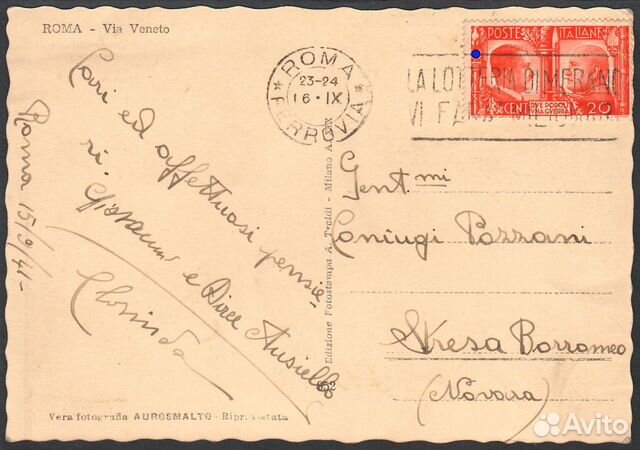 ROMA - Via Veneto
Cari ed
affettuosi pensie
ri Giovanni e Dirce Ausiello
Clorinda
Roma 15/9/41-
ROMA
23-24
16·IX
FERROVIA
POSTE ITALIANE
CENT. DVE POPOLI VNA GVERRA 20
LA LOTTERIA DI MERANO
VI FARÀ MILIONARI
Gent.mi
Coniugi Pozzani
Stresa Borromeo
(Novara)
Edizione Fotostampa A. Traldi - Milano
Vera fotografia AUROSMALTO - Ripr. vietata
Avito